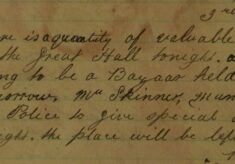 3rd
re is a quantity of valuable
the Great Hall tonight. a
ng to be a Bazaar held
orrow, Mrs Skinner,
Police to give special a
ight. the place will be lef